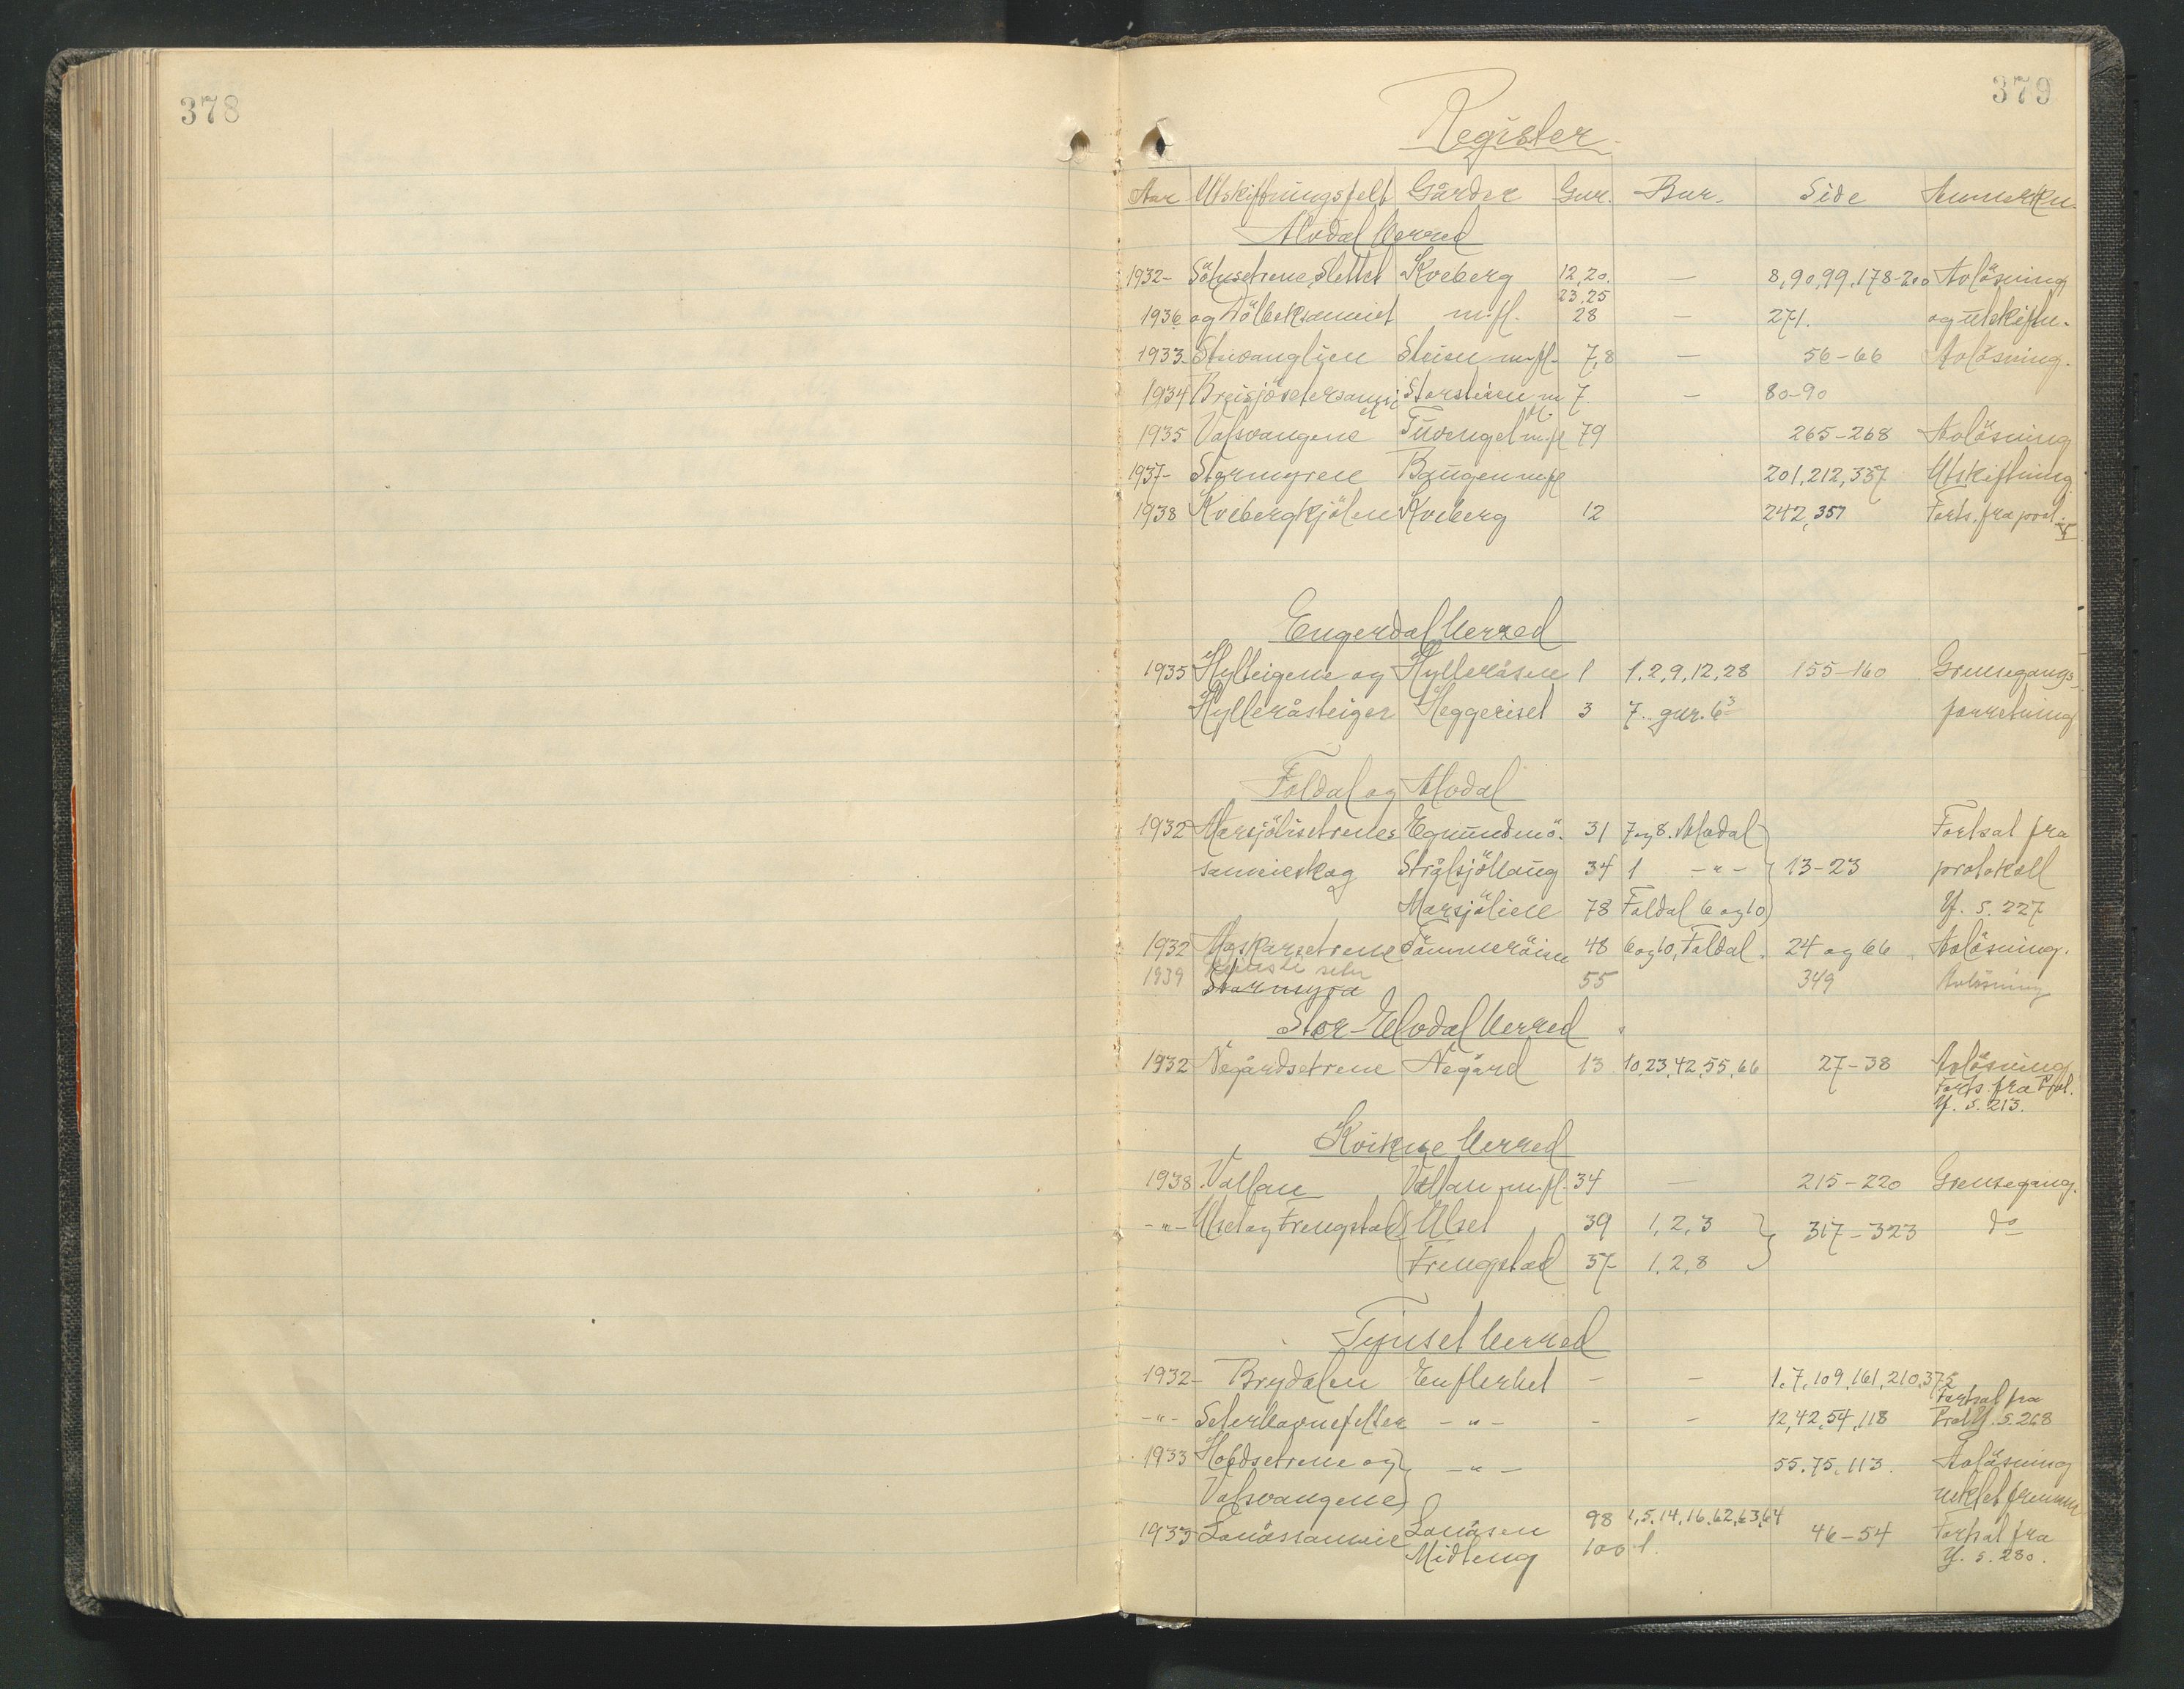 378
379
Register.
Aar Utskiftningsfelt Gårder Gnr. Bnr. Side Anmerkn.
Alvdal Herred
1932- Sölnsetrene, Slettet Kveberg 12,20. — 8,90,99,178-200 Avlösning
23,25
1936 og m.fl. 28 — 271. og utskiftn.
1933- Steien m.fl. 7,8 — 56-66 Avlösning.
1934 Storsteien m. 7. — 80-90
fl.
1935 Valsvangene Tuvenget m.fl 79 265-268 Avlösning
1937- Stormyren Baugen m.fl 201,212,357 Utskiftning
1938 Kvebergkjölen Kveberg 12 242,357 Forts. fra prot.
Engerdal Herred
1935 Hylleigene og Hylleråsen 1 1,2,9,12,28 155-160 Grensegangs-
Hylleråsteiger Heggeriset 3 7. gnr. 6³ forretning
Foldal og Alvdal
1932 Marsjölisetrenes Egnundmo. 31 7 og 8. Alvdal Fortsat fra
sameieskog Strålsjöhaug 34 1 -"- 13-23 protokoll
Marsjölien 78 Foldal 6 og 10 Y. s. 227
1932 48 6 og 10, Foldal. 24 og 66 Avlösning.
1939 Stormyra 55 349 Avlösning
Stor-Elvdal Herred
1932 Negårdsetrene Negård 13 10,23,42,55,66 27-38 Avlösning
Forts. fra Prot.
Y. s. 213.
Kvikne Herred
1938 Vollan Vollan m.fl. 34 — 215-220 Grensegang.
-"- Uset og Frengstad Uset 39 1,2,3 317-323 do
Frengstad 37 1,2,8
Tynset Herred
1932- Brydalen En flerhet - - 1,7,109,161,210,375
Fortsat fra
-"- Seterhavnefelter -"- - - 12,42,54,118 Prot Y. s. 268
1933 Hoddsetrene og -"- 55,75,113. Avlösning
Valsvangene
1933 Lonåssameie Lonåsen 98 1,5,14,16,62,63,64 46-54 Fortsat fra
Midteng 100 1. Y. s. 280.